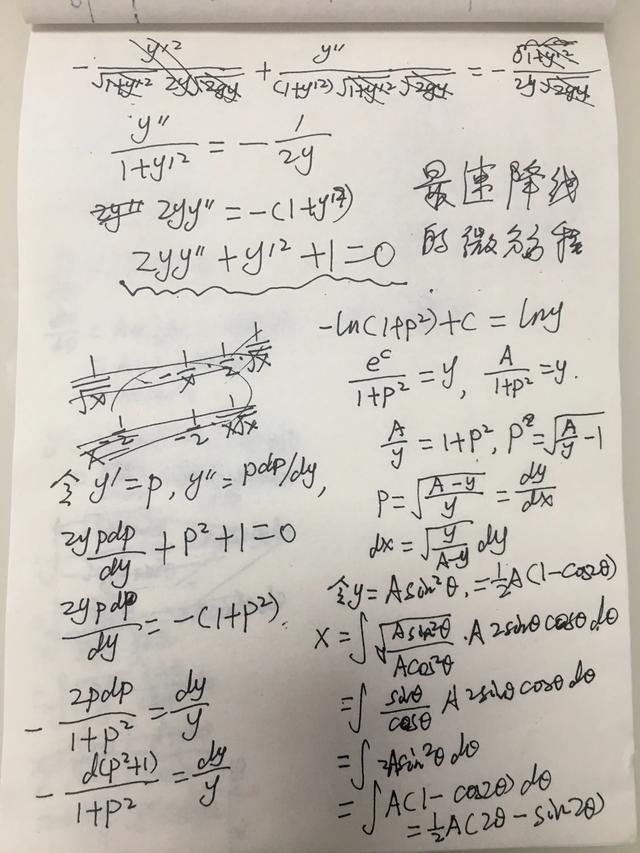 - y'² / (√(1+y'²) 2y√(2gy)) + y'' / ((1+y'²)√(1+y'²)√(2gy)) = - √(1+y'²) / (2y√(2gy))
y'' / (1+y'²) = - 1 / (2y)
2yy'' = -(1+y'²)
2yy'' + y'² + 1 = 0
最速降线
的微分方程
令 y' = p, y'' = pdp/dy,
2ypdp/dy + p² + 1 = 0
2ypdp/dy = -(1+p²).
- 2pdp/(1+p²) = dy/y
- d(p²+1)/(1+p²) = dy/y
-ln(1+p²) + C = lny
e^c/(1+p²) = y, A/(1+p²) = y.
A/y = 1+p², p = √(A/y - 1)
p = √((A-y)/y) = dy/dx
dx = √(y/(A-y)) dy
令 y = Asin²θ, = ½A(1-cos2θ)
x = ∫√(Asin²θ/Acos²θ) · A2sinθcosθdθ
= ∫ sinθ/cosθ A2sinθcosθdθ
= ∫2Asin²θdθ
= ∫A(1-cos2θ)dθ
= ½A(2θ - sin2θ)